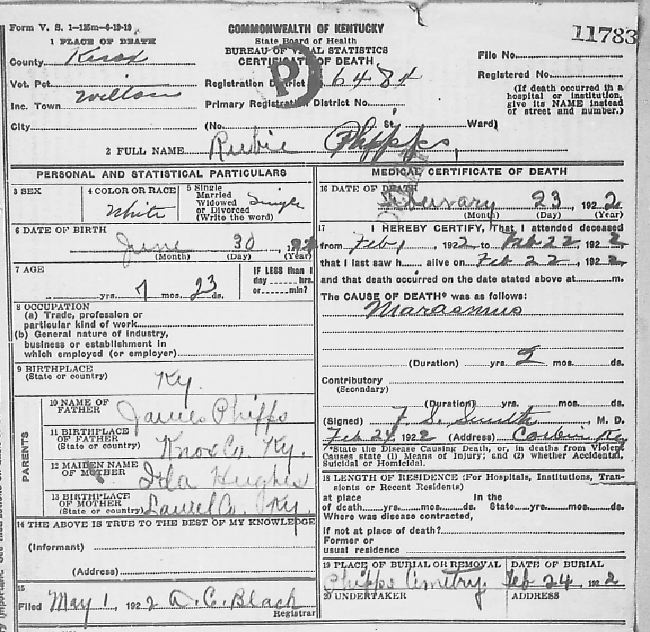 Form V. S. 1-125m-4-19-19
COMMONWEALTH OF KENTUCKY
11783
1 PLACE OF DEATH
State Board of Health
BUREAU OF VITAL STATISTICS
CERTIFICATE OF DEATH
County Knox
File No.
Vot. Pct. Wilton
Registration District 6484
Registered No.
Inc. Town
Primary Registration District No.
(If death occurred in a hospital or institution, give its NAME instead of street and number.)
City
(No. St. Ward)
2 FULL NAME Rubie Phipps
PERSONAL AND STATISTICAL PARTICULARS
3 SEX
4 COLOR OR RACE White
5 Single Married Widowed or Divorced (Write the word) Single
6 DATE OF BIRTH
June 30, 192
(Month) (Day) (Year)
7 AGE
yrs. 7 mos. 23 ds.
IF LESS than 1 day hrs. or min.?
8 OCCUPATION
(a) Trade, profession or
particular kind of work
(b) General nature of industry,
business or establishment in
which employed (or employer)
9 BIRTHPLACE
(State or country) Ky.
PARENTS
10 NAME OF
FATHER James Phipps
11 BIRTHPLACE
OF FATHER
(State or country) Knox Co. Ky.
12 MAIDEN NAME
OF MOTHER Ida Hughes
13 BIRTHPLACE
OF MOTHER
(State or country) Laurel Co. Ky.
14 THE ABOVE IS TRUE TO THE BEST OF MY KNOWLEDGE
(Informant)
(Address)
15
Filed May 1 1922 D.C. Black
Registrar
MEDICAL CERTIFICATE OF DEATH
16 DATE OF DEATH
February 23 1922
(Month) (Day) (Year)
17 I HEREBY CERTIFY, That I attended deceased
from Feb 1, 1922 to Feb 22 1922
that I last saw h alive on Feb 22, 1922
and that death occurred on the date stated above at m.
The CAUSE OF DEATH* was as follows:
Marasmus
(Duration) yrs. mos. ds.
Contributory
(Secondary)
(Duration) yrs. mos. ds.
(Signed) J S. Smith M. D.
Feb 24 1922 (Address) Corbin Ky
*State the Disease Causing Death, or, in deaths from Violent
Causes state (1) Means of Injury; and (2) Whether Accidental,
Suicidal or Homicidal.
18 LENGTH OF RESIDENCE (For Hospitals, Institutions, Transients or Recent Residents)
at place In the
of death yrs. mos. ds. State yrs. mos. ds.
Where was disease contracted,
if not at place of death?
Former or
usual residence
19 PLACE OF BURIAL OR REMOVAL DATE OF BURIAL
Phipps Cemetry. Feb 24 1922
20 UNDERTAKER ADDRESS